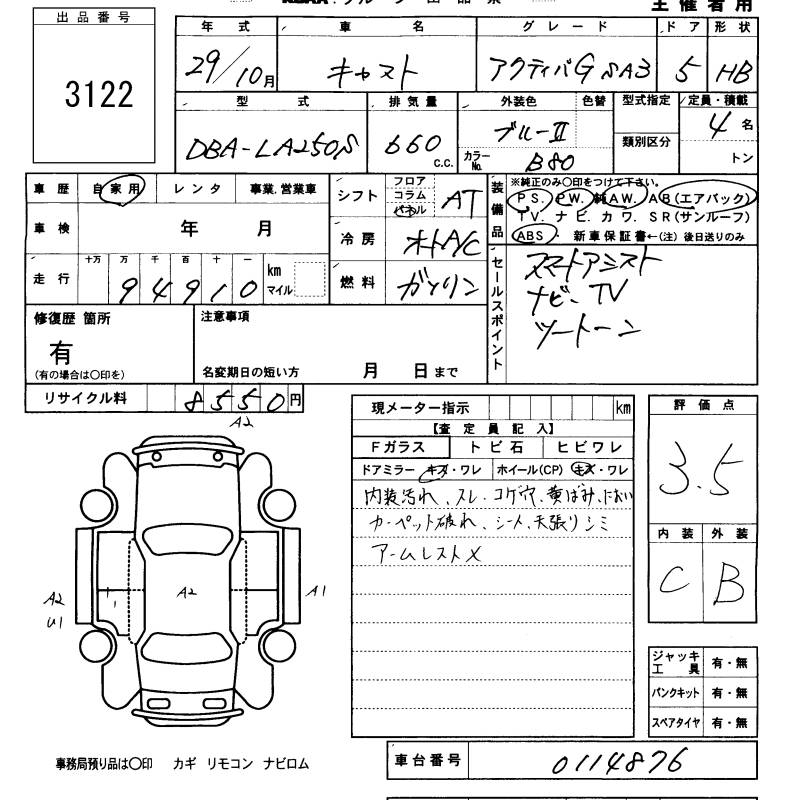 主催者用
出品番号
3122
年式 車名 グレード ドア 形状
29/10月 キャスト アクティバG SA3 5 HB
型式 排気量 外装色 色替 型式指定 定員・積載
DBA-LA250S 660 c.c. ブルーⅡ 類別区分 4名
カラーNo. B80 トン
車歴 自家用 レンタ 事業,営業車
シフト フロア コラム パネル AT
装備品
※純正のみ〇印をつけて下さい。
PS. PW. 純AW. AB(エアバック)
TV. ナビ. カワ. SR(サンルーフ)
ABS ・ 新車保証書←(注) 後日送りのみ
車検 年 月
冷房 オートA/C
走行 十万 万 千 百 十 一
94910 km マイル
燃料 ガソリン
セールスポイント
スマートアシスト
ナビ、TV
ツートーン
修復歴 箇所
有
(有の場合は〇印を)
注意事項
名変期日の短い方 月 日まで
リサイクル料 8550円
現メーター指示 km
【査定員記入】
Fガラス トビ石 ヒビワレ
ドアミラー キズ・ワレ ホイール(CP) キズ・ワレ
内装汚れ、スレ、コゲ穴、黄ばみ、におい
カーペット破れ、シート、天張りシミ
アームレスト×
評価点
3.5
内装 外装
C B
A2
A2
U1
A2
A1
ジャッキ工具 有・無
パンクキット 有・無
スペアタイヤ 有・無
事務局預り品は〇印 カギ リモコン ナビロム
車台番号 0114876